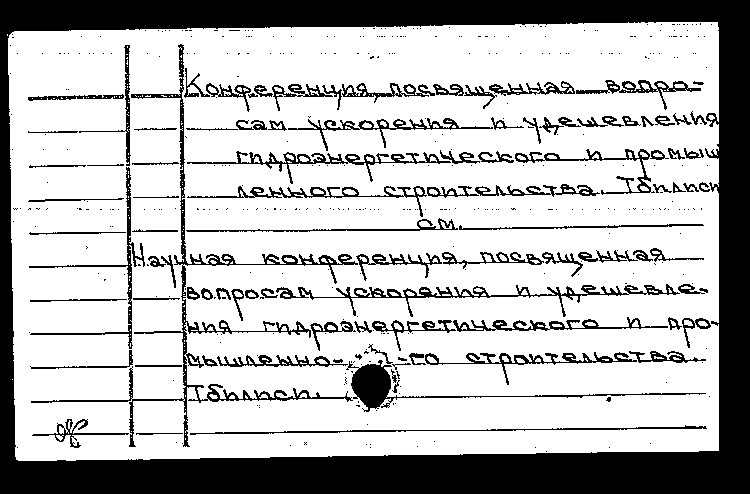 Конференция, посвященная вопро-
сам ускорения и удешевления
гидроэнергетического и промыш
ленного строительства. Тбилиси
см.
Научная конференция, посвященная
вопросам ускорения и удешевле-
ния гидроэнергетического и про-
мышленно-го строительства.
Тбилиси.